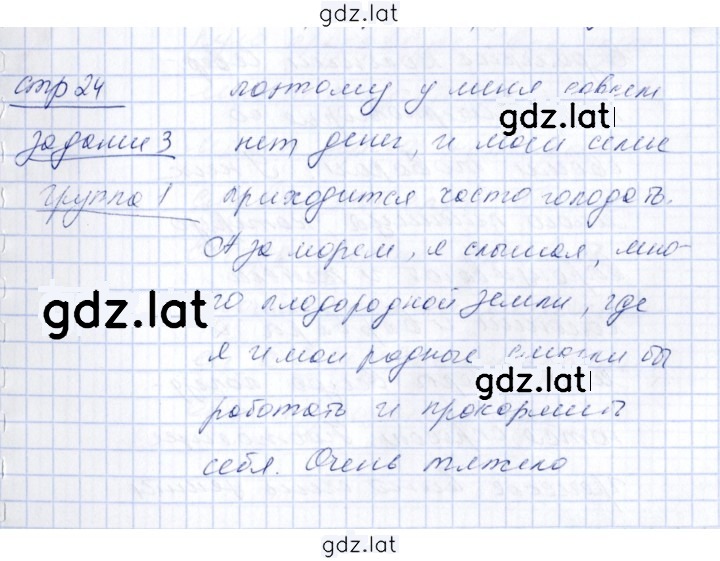 gdz.lat
стр 24
поэтому у меня совсем
gdz.lat
задание 3
нет денег, и моей семье
группа 1
приходится часто голодать.
А за морем, я слышал, мно-
gdz.lat
го плодородной земли, где
я и мои родные смогли бы
gdz.lat
работать и прокормить
себя. Очень тяжело
gdz.lat